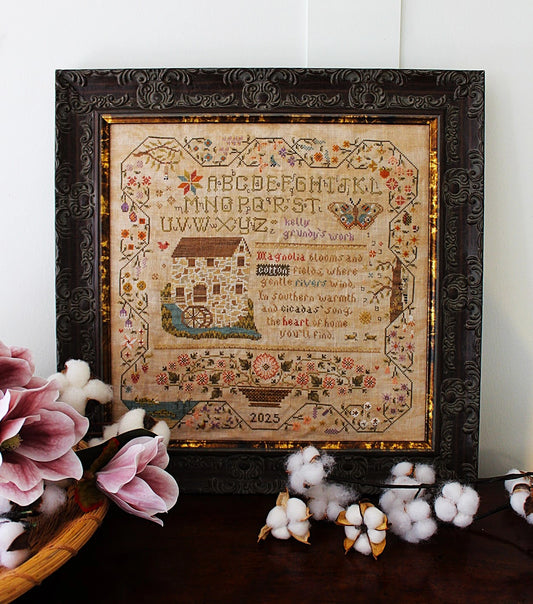 ABCDEFGHIJKL
MNOPQRST
UVWXYZ
kelly
grundy's work
Magnolia blooms and
cotton fields, where
gentle rivers wind,
In southern warmth
and cicadas' song,
the heart of home
you'll find.
2025